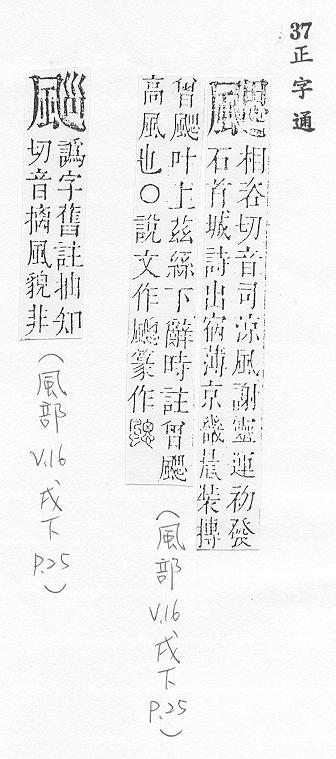 37正字通
颸
相咨切音司涼風謝靈運初發
石首城詩出宿薄京畿晨裝摶
曾颸叶上茲絲下辭時註曾颸
高風也○說文作颸篆作
(風部 V.16 戌下 P.25)
譌字舊註抽知
切音摛風貌非
(風部 V.16 戌下 P.25)